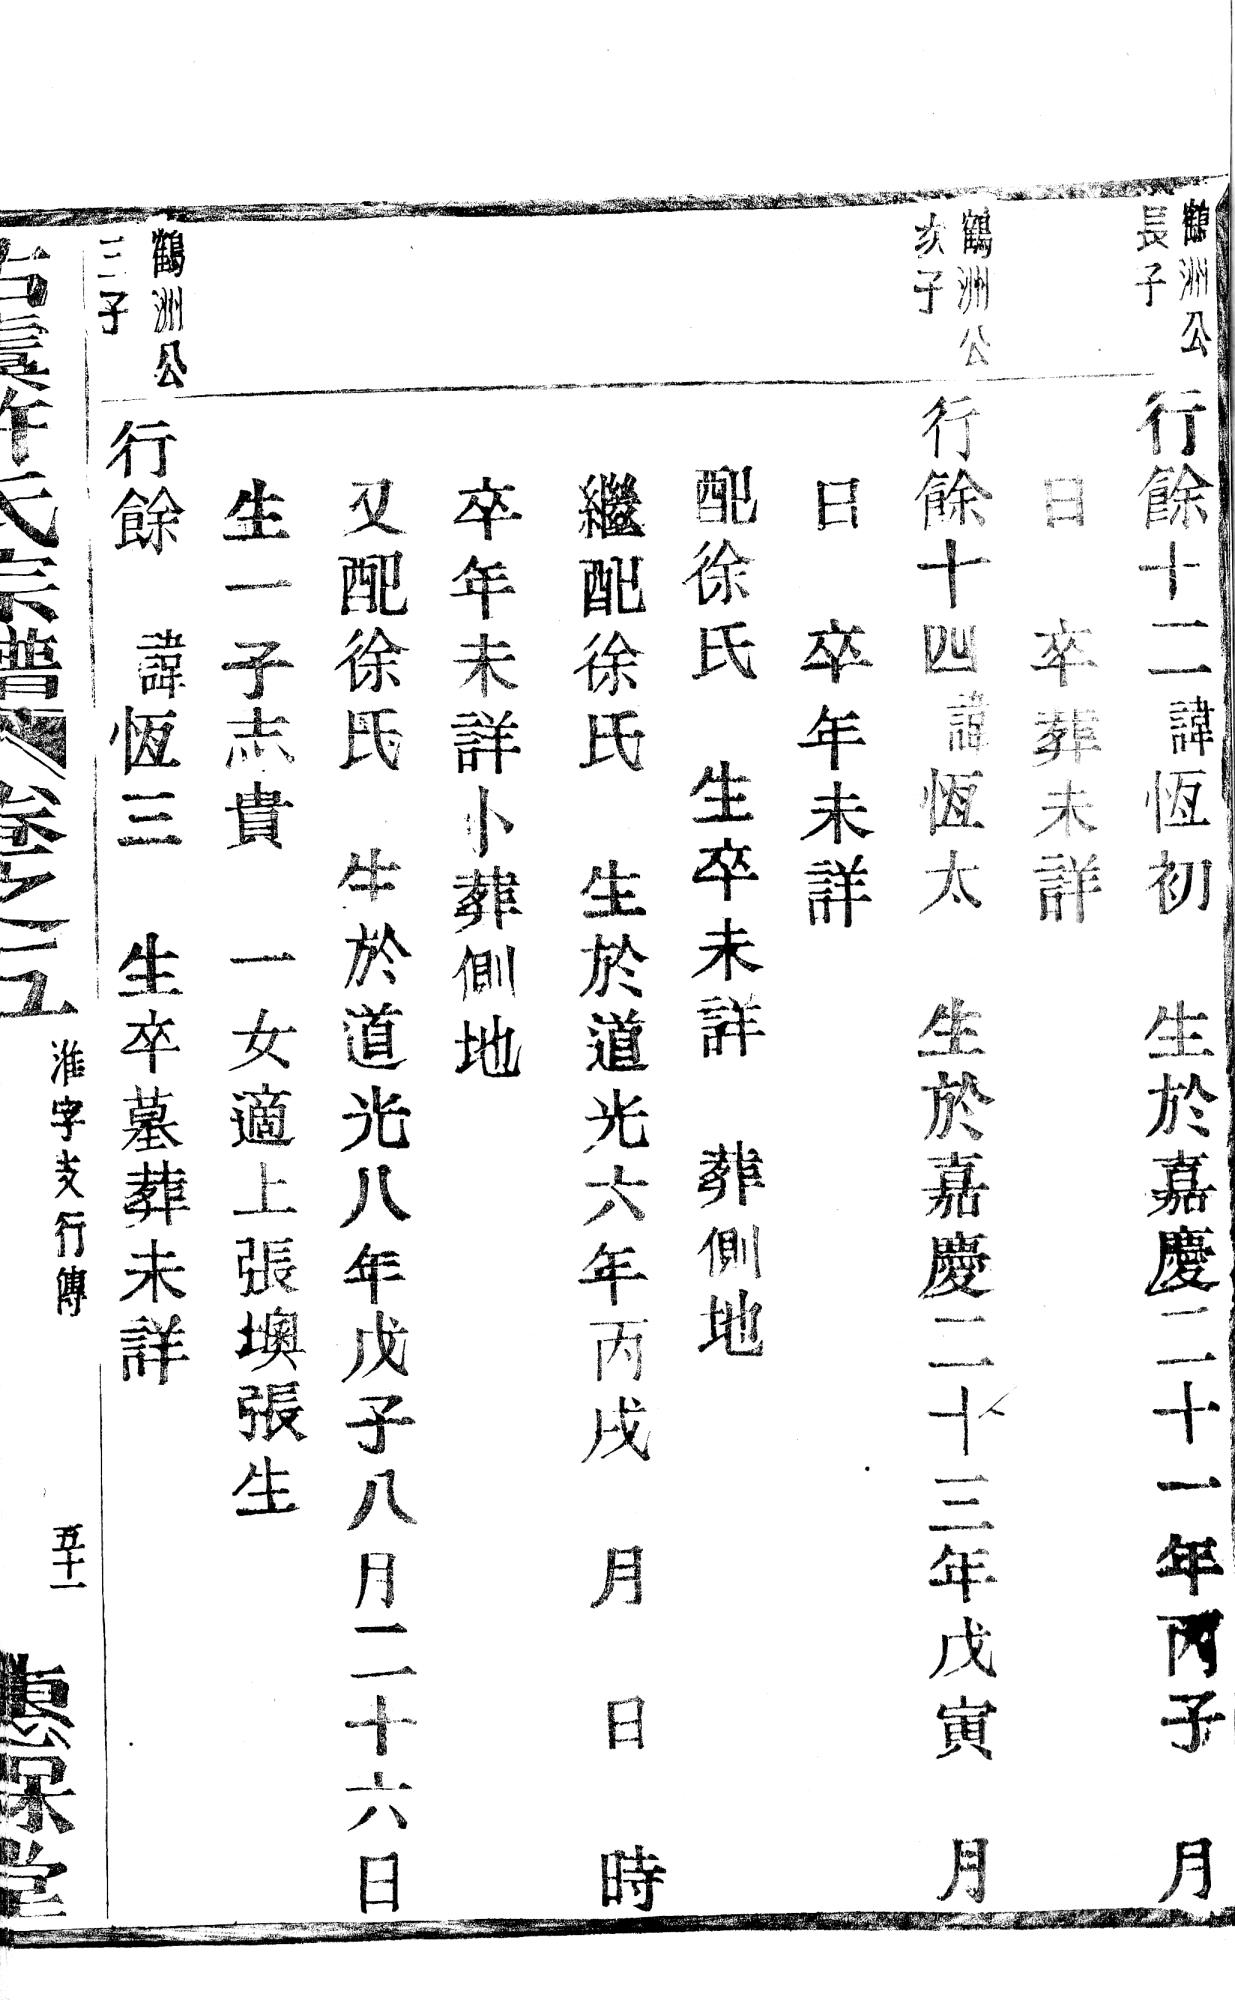 鶴洲公
長子
行餘十二諱恆初　生於嘉慶二十一年丙子　月
日　卒葬未詳
鶴洲公
次子
行餘十四諱恆太　生於嘉慶二十三年戊寅　月
日　卒年未詳
配徐氏　生卒未詳　葬側地
繼配徐氏　生於道光六年丙戌　月　日　時
卒年未詳卜葬側地
又配徐氏　生於道光八年戊子八月二十六日
生一子志貴　一女適上張墺張生
鶴洲公
三子
行餘　諱恆三　生卒墓葬未詳
古虞許氏宗譜　卷之五　淮字支行傳　五十一　惠保堂